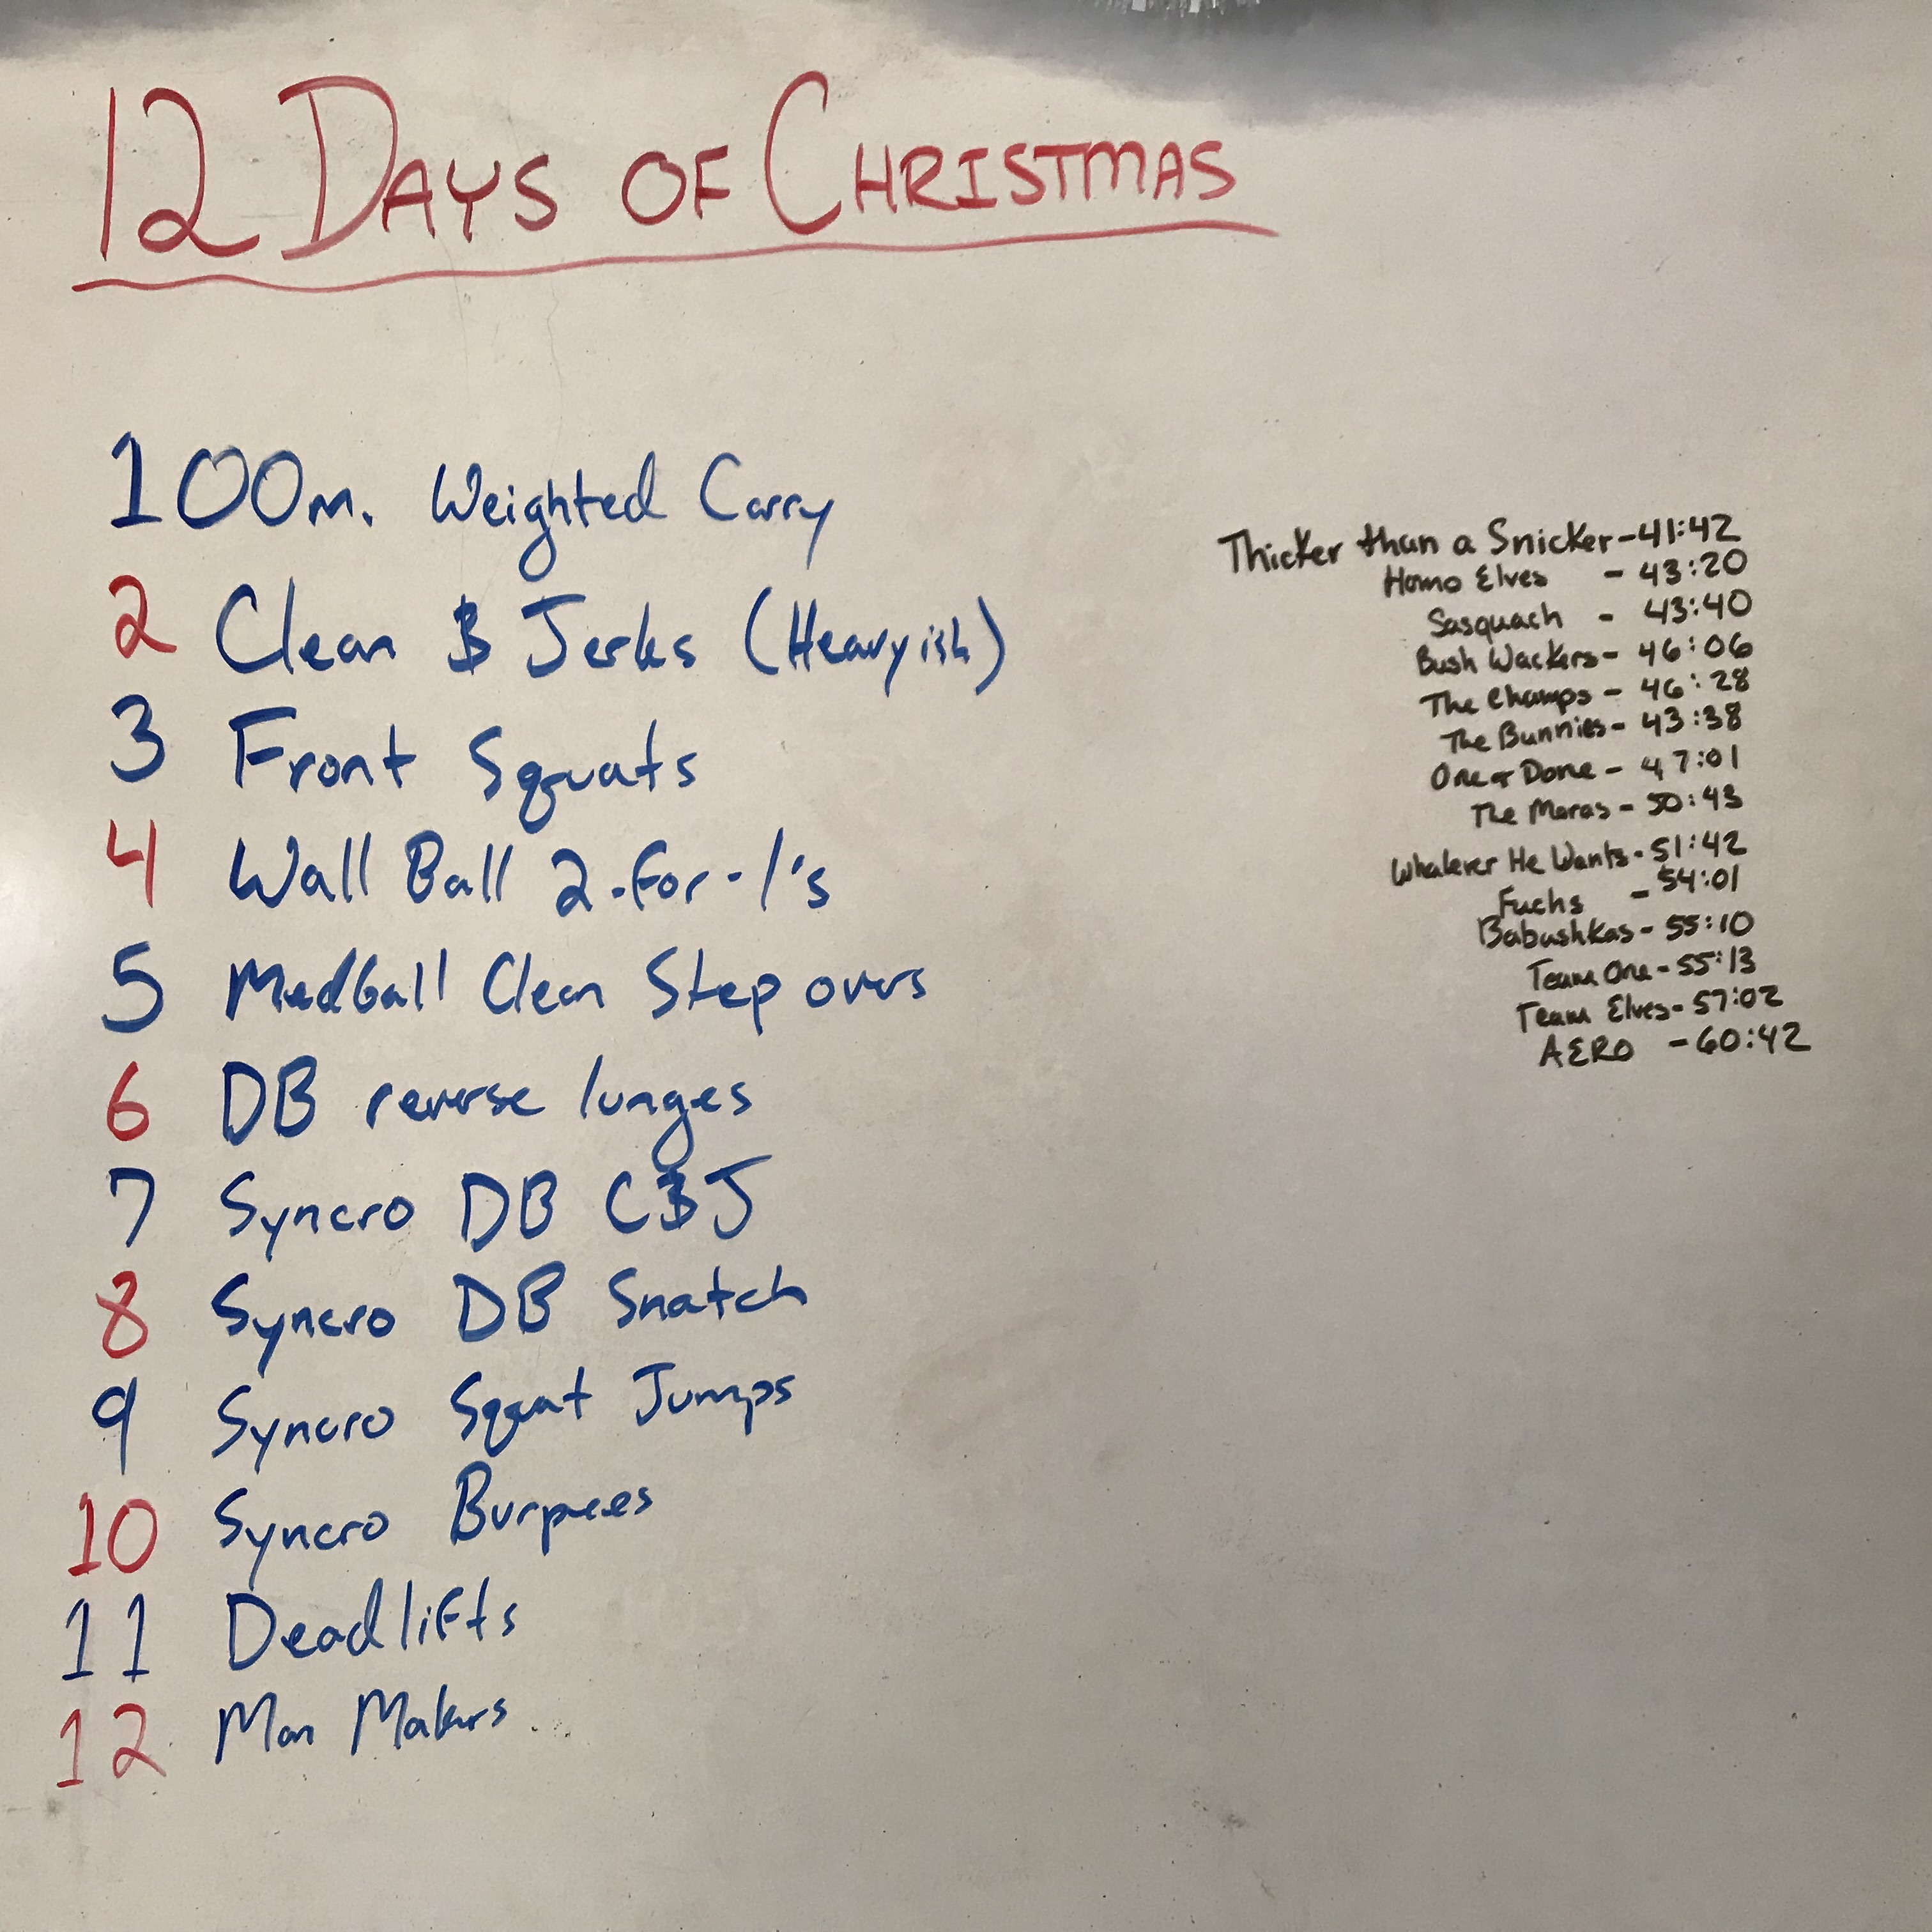 12 DAYS OF CHRISTMAS
100m. Weighted Carry
2 Clean & Jerks (Heavyish)
3 Front Squats
4 Wall Ball 2-for-1's
5 Medball Clean Step overs
6 DB reverse lunges
7 Syncro DB C&J
8 Syncro DB Snatch
9 Syncro Squat Jumps
10 Syncro Burpees
11 Deadlifts
12 Man Makers
Thicker than a Snicker - 41:42
Homo Elves - 43:20
Sasquach - 43:40
Bush Wackers - 46:06
The Champs - 46:28
The Bunnies - 43:38
One & Done - 47:01
The Moras - 50:43
Whatever He Wants - 51:42
Fuchs - 54:01
Babushkas - 55:10
Team One - 55:13
Team Elves - 57:02
AERO - 60:42